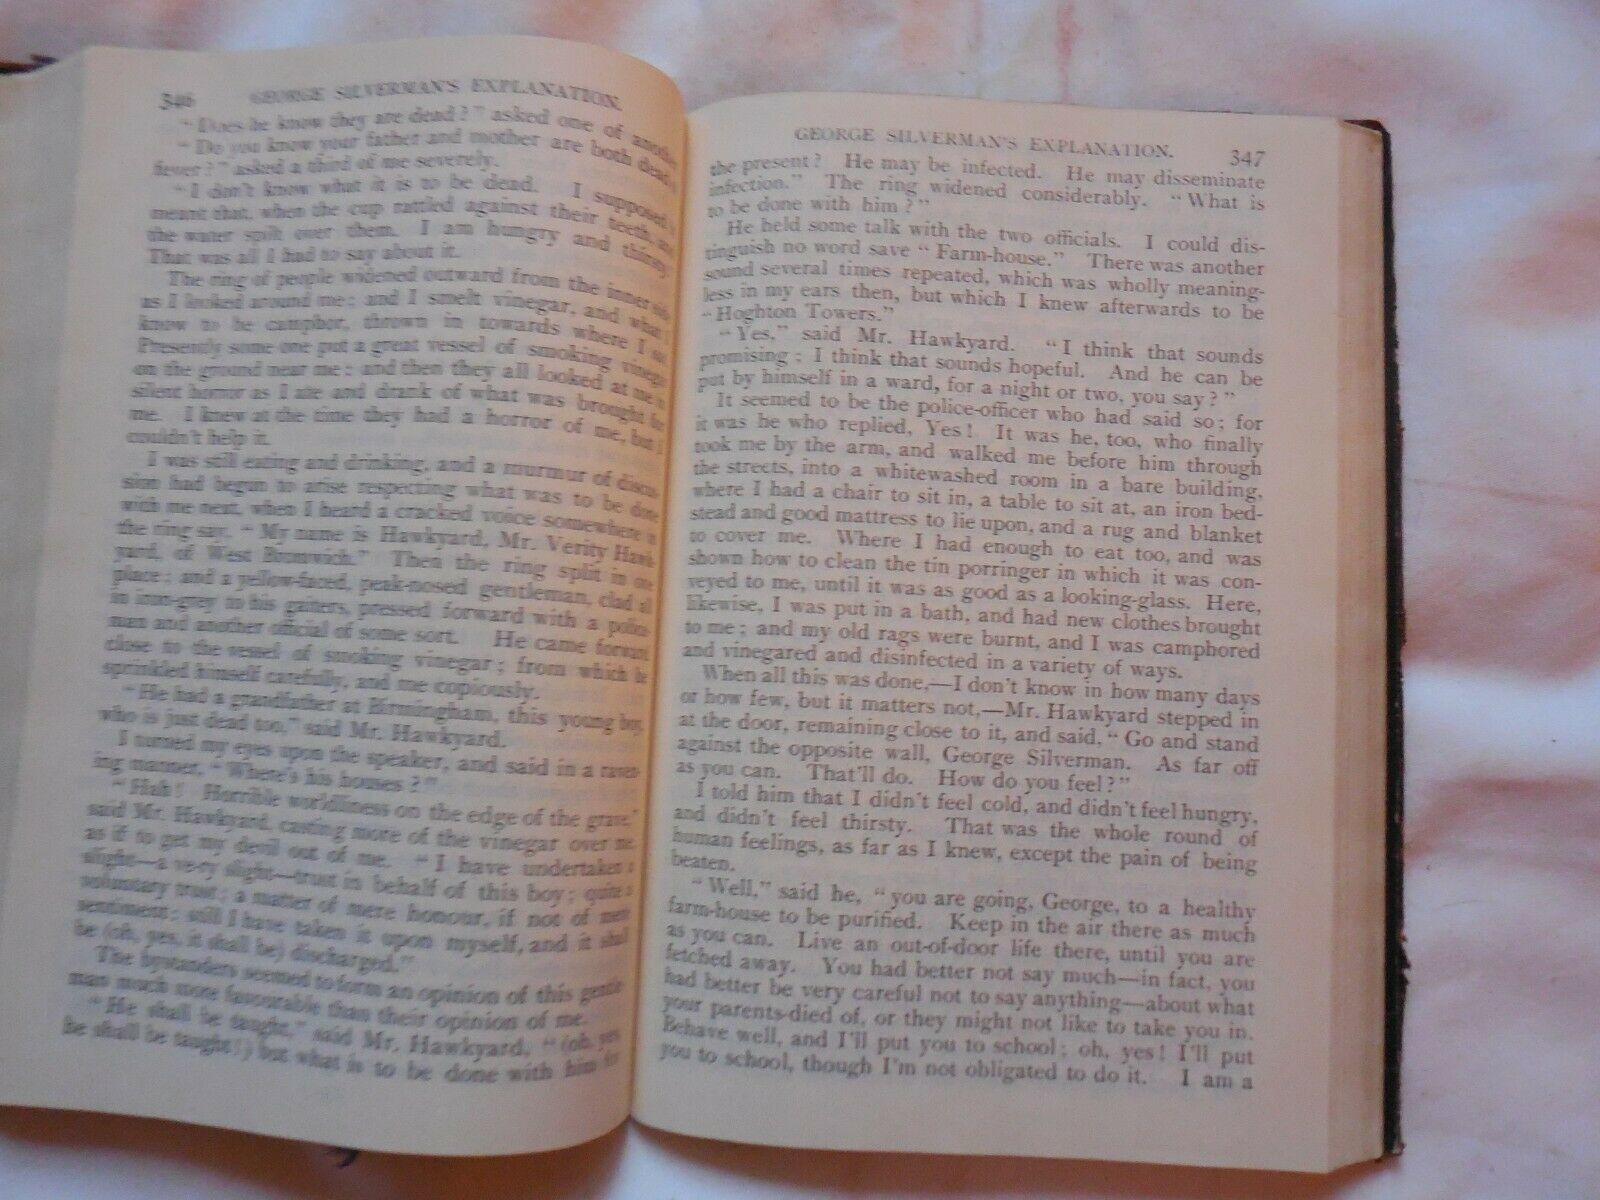 346 GEORGE SILVERMAN'S EXPLANATION.
"Does he know they are dead?" asked one of another.
"Do you know your father and mother are both dead of
fever?" asked a third of me severely.
"I don't know what it is to be dead. I supposed it
meant that, when the cup rattled against their teeth, and
the water spilt over them. I am hungry and thirsty."
That was all I had to say about it.
The ring of people widened outward from the inner side
as I looked around me; and I smelt vinegar, and what I
know to be camphor, thrown in towards where I sat.
Presently some one put a great vessel of smoking vinegar
on the ground near me; and then they all looked at me in
silent horror as I ate and drank of what was brought for
me. I knew at the time they had a horror of me, but I
couldn't help it.
I was still eating and drinking, and a murmur of discus-
sion had begun to arise respecting what was to be done
with me next, when I heard a cracked voice somewhere in
the ring say, "My name is Hawkyard, Mr. Verity Hawk-
yard, of West Bromwich." Then the ring split in one
place; and a yellow-faced, peak-nosed gentleman, clad all
in iron-grey to his gaiters, pressed forward with a police-
man and another official of some sort. He came forward
close to the vessel of smoking vinegar; from which he
sprinkled himself carefully, and me copiously.
"He had a grandfather at Birmingham, this young boy,
who is just dead too," said Mr. Hawkyard.
I turned my eyes upon the speaker, and said in a raven-
ing manner, "Where's his houses?"
"Hah! Horrible worldliness on the edge of the grave,"
said Mr. Hawkyard, casting more of the vinegar over me,
as if to get my devil out of me. "I have undertaken a
slight—a very slight—trust in behalf of this boy; quite a
voluntary trust; a matter of mere honour, if not of mere
sentiment; still I have taken it upon myself, and it shall
be (oh, yes, it shall be) discharged."
The bystanders seemed to form an opinion of this gentle-
man much more favourable than their opinion of me.
"He shall be taught," said Mr. Hawkyard, "(oh, yes,
he shall be taught!) but what is to be done with him for
GEORGE SILVERMAN'S EXPLANATION. 347
the present? He may be infected. He may disseminate
infection." The ring widened considerably. "What is
to be done with him?"
He held some talk with the two officials. I could dis-
tinguish no word save "Farm-house." There was another
sound several times repeated, which was wholly meaning-
less in my ears then, but which I knew afterwards to be
"Hoghton Towers."
"Yes," said Mr. Hawkyard. "I think that sounds
promising; I think that sounds hopeful. And he can be
put by himself in a ward, for a night or two, you say?"
It seemed to be the police-officer who had said so; for
it was he who replied, Yes! It was he, too, who finally
took me by the arm, and walked me before him through
the streets, into a whitewashed room in a bare building,
where I had a chair to sit in, a table to sit at, an iron bed-
stead and good mattress to lie upon, and a rug and blanket
to cover me. Where I had enough to eat too, and was
shown how to clean the tin porringer in which it was con-
veyed to me, until it was as good as a looking-glass. Here,
likewise, I was put in a bath, and had new clothes brought
to me; and my old rags were burnt, and I was camphored
and vinegared and disinfected in a variety of ways.
When all this was done,—I don't know in how many days
or how few, but it matters not,—Mr. Hawkyard stepped in
at the door, remaining close to it, and said, "Go and stand
against the opposite wall, George Silverman. As far off
as you can. That'll do. How do you feel?"
I told him that I didn't feel cold, and didn't feel hungry,
and didn't feel thirsty. That was the whole round of
human feelings, as far as I knew, except the pain of being
beaten.
"Well," said he, "you are going, George, to a healthy
farm-house to be purified. Keep in the air there as much
as you can. Live an out-of-door life there, until you are
fetched away. You had better not say much—in fact, you
had better be very careful not to say anything—about what
your parents died of, or they might not like to take you in.
Behave well, and I'll put you to school; oh, yes! I'll put
you to school, though I'm not obligated to do it. I am a